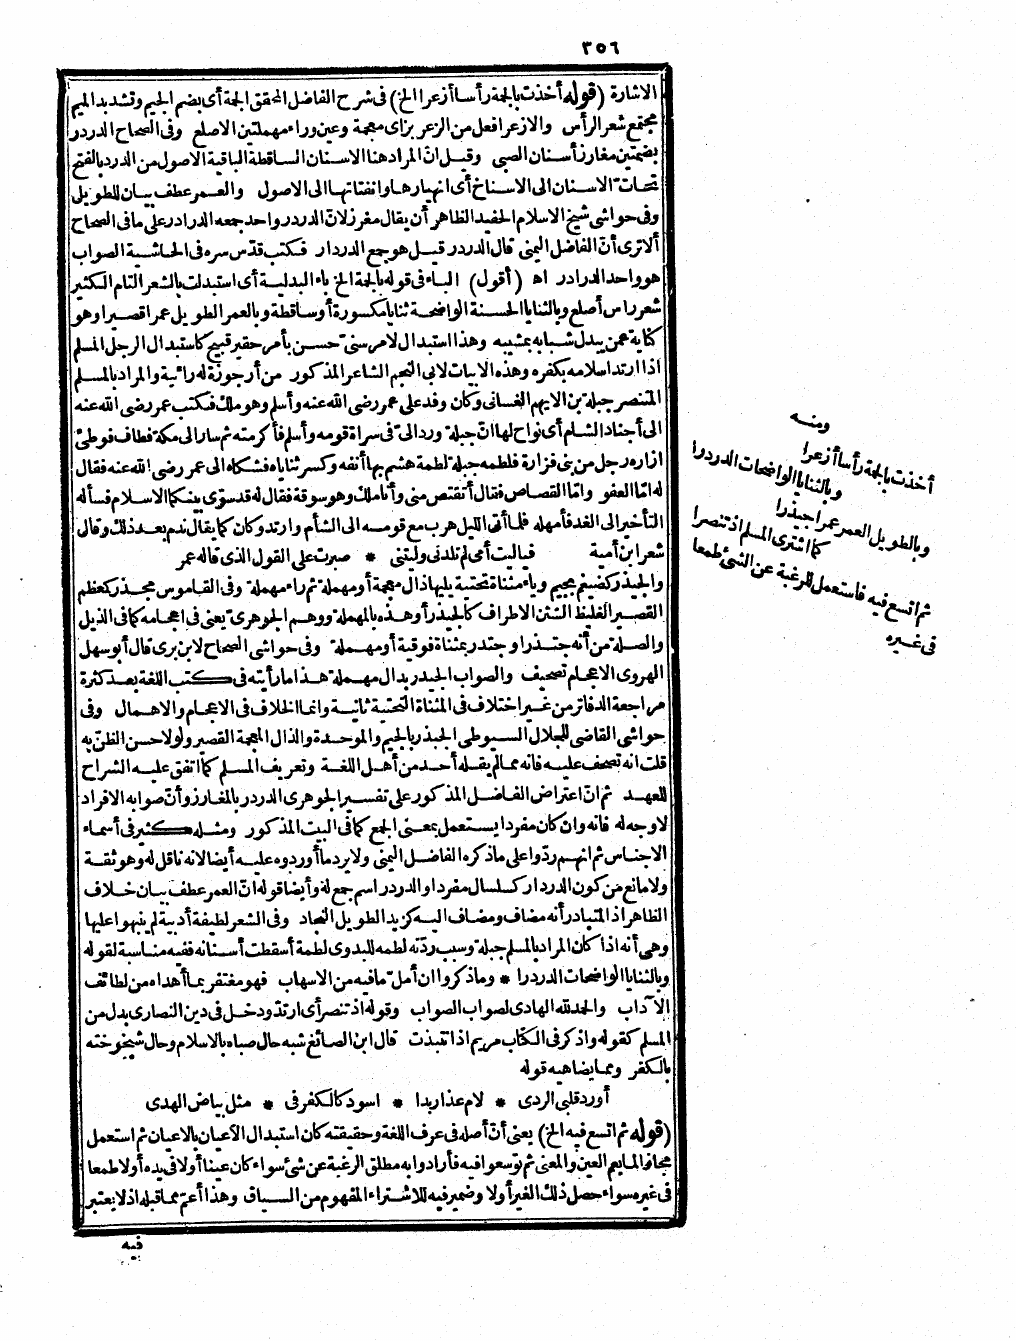 ٣٥٦
الاشارة (قوله أخذت بالجمة رأسا أزعرا الخ) فى شرح الفاضل المحقق الجمة أى بضم الجيم وتشديد الميم
مجتمع شعر الرأس والازعر افعل من الزعر بزاى معجمة وعين وراء مهملتين الاصلع وفى الصحاح الدردر
بضمتين مغارز أسنان الصبى وقيل انّ المراد هنا الاسنان الساقطة الباقية الاصول من الدرد بالفتح
تحاتّ الاسنان الى الاسناخ أى انهيارها وانفتاتها الى الاصول والعمر عطف بيان للطويل
وفى حواشى شيخ الاسلام الحفيد الظاهر أن يقال مغرز لانّ الدردر واحد جمعه الدرادر على ما فى الصحاح
ألا ترى أنّ الفاضل اليمنى قال الدردر قيل هو جمع الدردار فكتب قدّس سره فى الحاشية الصواب
هو واحد الدرادر اه (أقول) الباء فى قوله بالجمة الخ باء البدلية أى استبدلت بالشعر التام الكثير
شعر رأس أصلع وبالثنايا الحسنة الواضحة ثنايا مكسورة أو ساقطة وبالعمر الطويل عمرا قصيرا وهو
كناية عمن يبدل شبابه بمشيبه وهذا استبدال لامر سنىّ حسن بأمر حقير قبيح كاستبدال الرجل المسلم
اذا ارتد اسلامه بكفره وهذه الابيات لابى النجم الشاعر المذكور من أرجوزة له رائية والمراد بالمسلم
المتنصر جبلة بن الايهم الغسانى وكان وفد على عمر رضى الله عنه وأسلم وهو ملك فكتب عمر رضى الله عنه
الى أجناد الشام أى نواح لها انّ جبلة ورد الىّ فى سراة قومه وأسلم فأكرمته ثم سار الى مكة فطاف فوطئ
ازاره رجل من بنى فزارة فلطمه جبلة لطمة هشم بها أنفه وكسر ثناياه فشكاه الى عمر رضى الله عنه فقال
له امّا العفو وامّا القصاص فقال أتقتص منى وأنا ملك وهو سوقة فقال له قد سوّى بينكما الاسلام فسأله
التأخير الى الغد فأمهله فلما أتى الليل هرب مع قومه الى الشأم وارتد وكان كما يقال ندم بعد ذلك وقال
شعر ابن أمية فياليت أى لم تلدنى وليتنى * صبرت على القول الذى قاله عمر
والجيذر كضيغم بجيم وياء مثناة تحتية يليها ذال معجمة أو مهملة ثم راء مهملة وفى القاموس مجذر كمعظم
القصير الغليظ الشثن الاطراف كالجيذر أو هذه بالمهملة ووهم الجوهرى يعنى فى اعجامه كما فى الذيل
والصلة من أنه جتذر او جتدر بمثناة فوقية أو مهملة وفى حواشى الصحاح لابن برى قال أبو سهل
الهروى الاعجام تصحيف والصواب الجيدر بدال مهملة هذا ما رأيته فى كتب اللغة بعد كثرة
مراجعة الدفاتر من غير اختلاف فى المثناة التحتية ثانية وانما الخلاف فى الاعجام والاهمال وفى
حواشى القاضى للجلال السيوطى الجبذر بالجيم والموحدة والذال المعجمة القصير ولولا حسن الظنّ به
قلت انه تصحف عليه فانه مما لم يقله أحد من أهل اللغة وتعريف المسلم كما اتفق عليه الشراح
للعهد ثم انّ اعتراض الفاضل المذكور على تفسير الجوهرى الدردر بالمغارز وأنّ صوابه الافراد
لا وجه له فانه وان كان مفردا يستعمل بمعنى الجمع كما فى البيت المذكور ومثله كثير فى أسماء
الاجناس ثم انهم ردّوا على ما ذكره الفاضل اليمنى ولا يرد ما أوردوه عليه أيضا لانه ناقل له وهو ثقة
ولا مانع من كون الدردار كلسال مفردا والدردر اسم جمع له وأيضا قوله انّ العمر عطف بيان خلاف
الظاهر اذ المتبادر أنه مضاف ومضاف اليه كزيد الطويل النجاد وفى الشعر لطيفة أدبية لم ينبهوا عليها
وهى أنه اذا كان المراد بالمسلم جبلة وسبب ردّته لطمه للبدوى لطمة أسقطت أسنانه ففيه مناسبة لقوله
وبالثنايا الواضحات الدردرا * وما ذكروا ان أملّ ما فيه من الاسهاب فهو مغتفر بما أهداه من لطائف
الآداب والحمد لله الهادى لصواب الصواب وقوله اذ تنصر أى ارتد ودخل فى دين النصارى بدل من
المسلم كقوله واذكر فى الكتاب مريم اذ انتبذت قال ابن الصائغ شبه حال صباه بالاسلام وحال شيخوخته
بالكفر ومما يضاهيه قوله
أورد قلبى الردى * لام عذار بدا * اسود كالكفر فى * مثل بياض الهدى
(قوله ثم اتسع فيه الخ) يعنى أنّ أصله فى عرف اللغة وحقيقته كان استبدال الاعيان بالاعيان ثم استعمل
مجازا لما يعم العين والمعنى ثم توسعوا فيه فأرادوا به مطلق الرغبة عن شئ سواء كان عينا أولا فى يده أولا طمعا
فى غيره سواء حصل ذلك الغير أولا وضمير فيه للاشتراء المفهوم من السياق وهذا أعمّ مما قبله اذ لا يعتبر
فيه
ومنه
أخذت بالجمة رأسا أزعرا
وبالثنايا الواضحات الدردرا
وبالطويل العمر عمرا جيذرا
كما اشترى المسلم اذ تنصرا
ثم اتسع فيه فاستعمل للرغبة عن الشئ طمعا
فى غيره